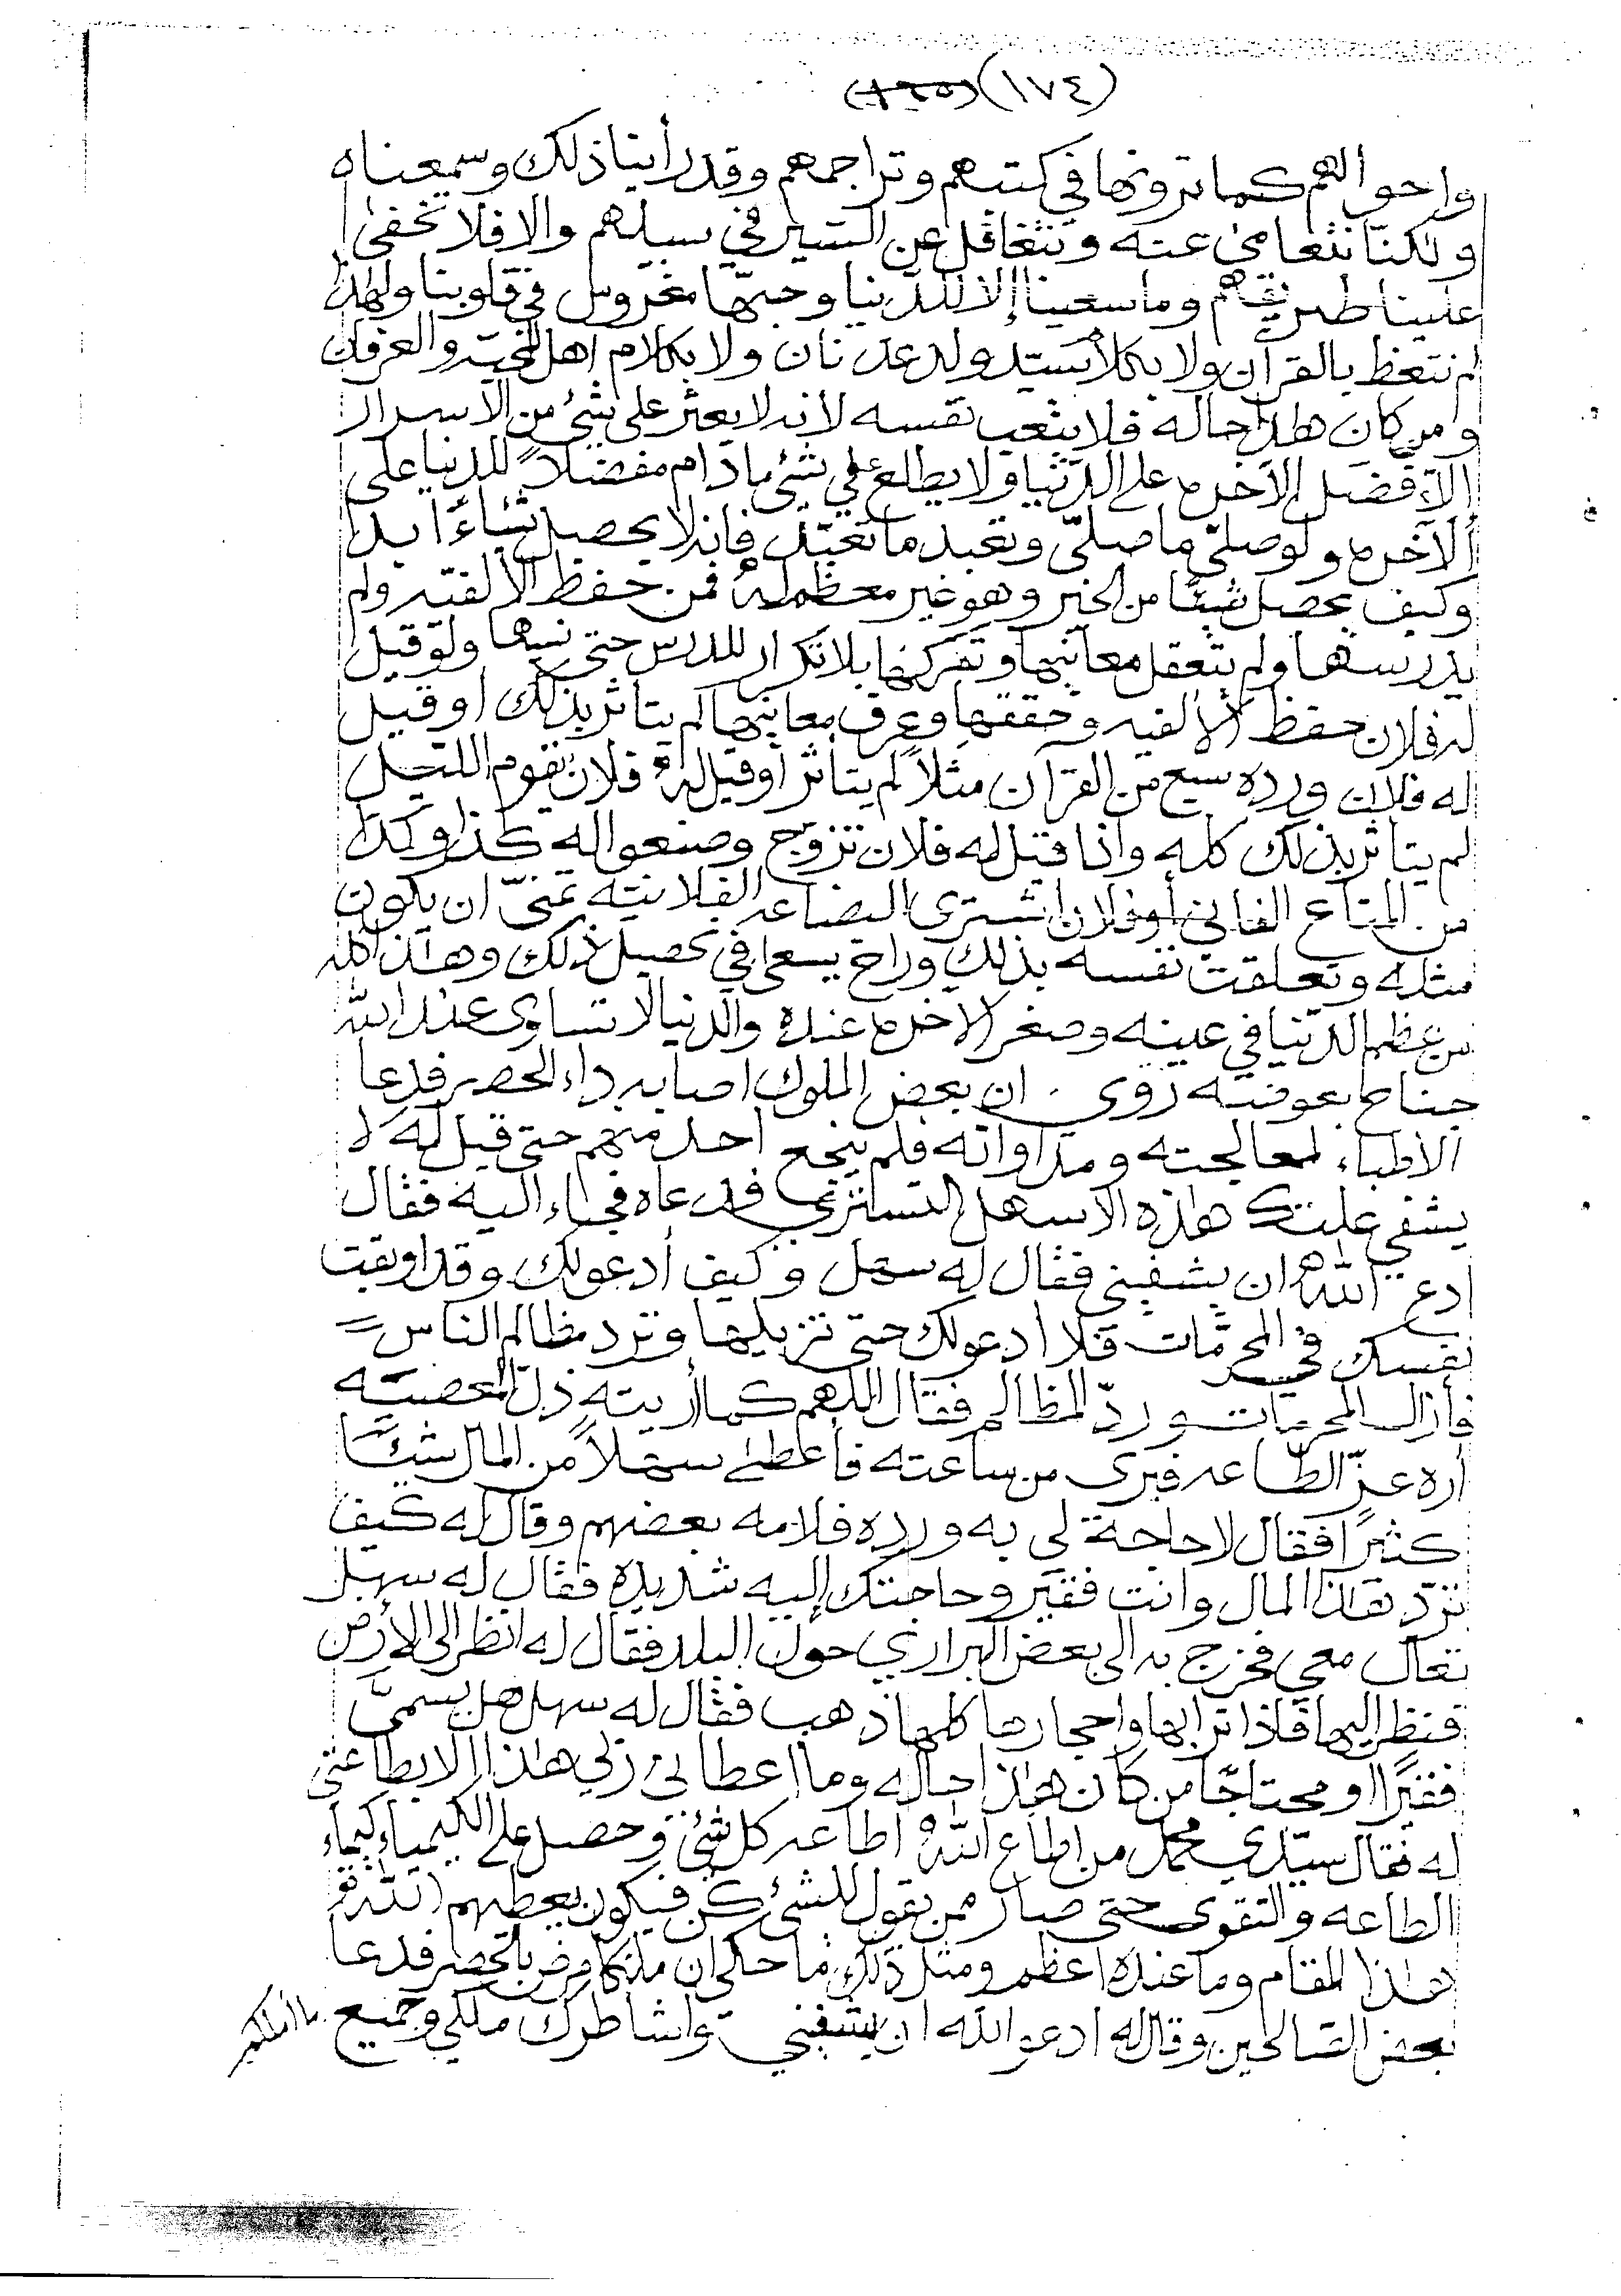 (١٧٤) (١٦٥)
واحوالهم كما ترونها في كتبهم وتراجمهم وقد رأينا ذلك وسمعناه
ولكنا نتعامى عنه ونتغافل عن السير في سبيلهم والا فلا تخفى
علينا طريقتهم وما سعينا إلا للدنيا وحبها مغروس في قلوبنا ولهذا
لم نتعظ بالقرآن ولا بكلام سيد ولد عدنان ولا بكلام اهل المحبة والعرفان
ومن كان هذا حاله فلا يتعب نفسه لأنه لا يعثر على شيء من الاسرار
إلا إن فضل الآخره على الدنيا ولا يطلع على شيء ما دام مفضلاً للدنيا على
الآخره ولو صلى ما صلى وتعبد ما تعبد فإنه لا يحصل شيئاً ابدا
وكيف يحصل شيئا من الخير وهو غير معظم له فمن حفظ الألفيه ولم
يدرسها ولم يتعقل معانيها وتركها بلا تكرار للدرس حتى نسيها ولو قيل
له فلان حفظ الألفيه وحققها وعرف معانيها لم يتأثر بذلك او قيل
له فلان ورده سبع من القرآن مثلاً لم يتأثر أو قيل له فلان يقوم الليل
لم يتأثر بذلك كله واذا قيل له فلان تزوج وصنعوا له كذا وكذا
من المتاع الفاني أو فلان اشترى البضاعه الفلانيه تمنى ان يكون
مثله وتعلقت نفسه بذلك وراح يسعى في تحصيل ذلك وهذا كله
من عظم الدنيا في عينه وصغر الآخره عنده والدنيا لا تساوى عند الله
جناح بعوضه روي ان بعض الملوك اصابه داء الحصر فدعا
الأطباء لمعالجته ومداواته فلم ينجع احد منهم حتى قيل له لا
يشفي علتك هذه الا سهل التستري فدعاه فجاء اليه فقال
ادع الله ان يشفيني فقال له سهل وكيف أدعو لك وقد اوبقت
نفسك في المحرمات فلا ادعو لك حتى تزيلها وترد مظالم الناس
فأزال المحرمات ورد المظالم فقال اللهم كما أريته ذل المعصيه
أره عز الطاعه فبرى من ساعته فأعطى سهلاً من المال شيئًا
كثيرًا فقال لا حاجة لي به ورده فلامه بعضهم وقال له كيف
ترد هذا المال وانت فقير وحاجتك إليه شديده فقال له سهل
تعال معي فخرج به الى بعض البراري حول البلد فقال له انظر الى الأرض
فنظر اليها فاذا ترابها واحجارها كلها ذهب فقال له سهل هل يسمى
فقيرًا او محتاجًا من كان هذا حاله وما اعطاني ربي هذا الا بطاعتي
له فقال سيدي محمد من اطاع الله اطاعه كل شيء وحصل على الكيمياء كيمياء
الطاعه والتقوى حتى صار ممن يقول للشيء كن فيكون يعطيهم الله
هذا المقام وما عنده اعظم ومثل ذلك ما حكى ان ملكا مرض بالحصر فدعا
بعض الصالحين وقال له ادعو الله ان يشفيني واشاطرك ملكي وجميع ما املكه